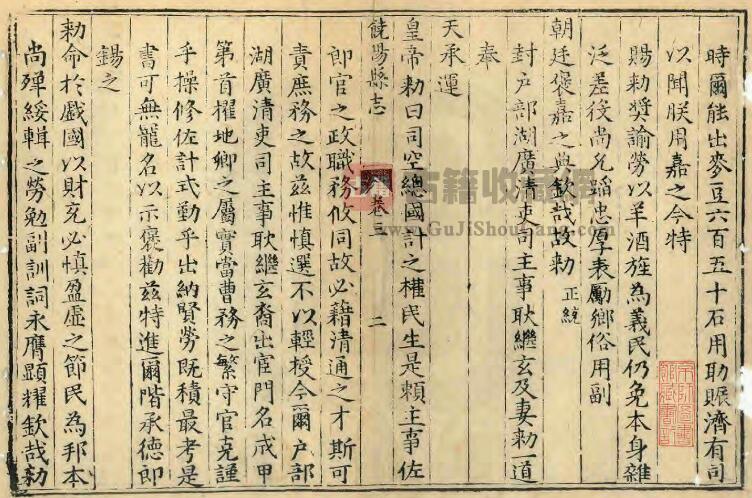 時爾能出麥豆六百五十石用助賑濟有司
以聞朕用嘉之今特
賜勅獎諭勞以羊酒旌為義民仍免本身雜
泛差役尚允蹈忠厚表勵鄉俗用副
朝廷褒嘉之典欽哉故勅 正統
封戶部湖廣清吏司主事耿繼玄及妻勅一道
奉
天承運
皇帝勅曰司空總國計之權民生是賴主事佐
饒陽縣志 卷三 二
郎官之政職務攸同故必藉清通之才斯可
責庶務之故兹惟慎選不以輕授今爾戶部
湖廣清吏司主事耿繼玄裔出宦門名戒甲
第首擢地卿之屬實當曹務之繁守官克謹
乎操修佐計式勤乎出納賢勞既積最考是
書可無寵名以示褒勸兹特進爾階承德郎
錫之
勅命於戲國以財充必慎盈虛之節民為邦本
尚殫綏輯之勞勉副訓詞永膺顯耀欽哉勅
古籍收藏網
www.GuJiShouCang.com